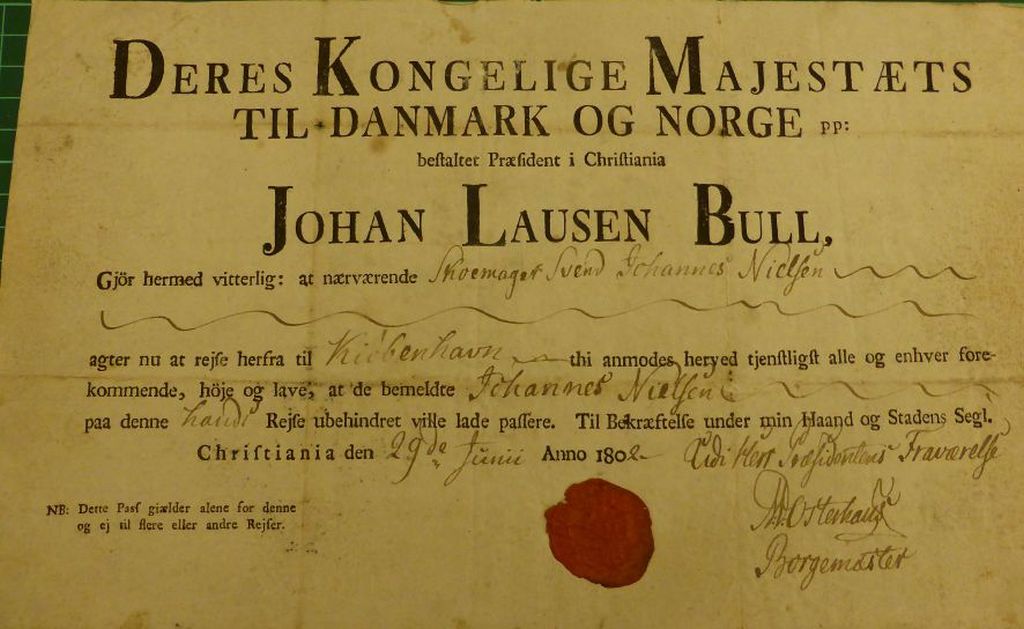 DERES KONGELIGE MAJESTÆTS
TIL DANMARK OG NORGE pp:
beſtalter Præſident i Chriſtiania
JOHAN LAUSEN BULL,
Gjör hermed vitterlig: at nærværende Skoemager Svend Johannes Nielſen
agter nu at rejſe herfra til Kiöbenhavn thi anmodes herved tjenſtligſt alle og enhver fore-
kommende, höje og lave, at de bemeldte Johannes Nielſen
paa denne hands Rejſe ubehindret ville lade paſſere. Til Bekræftelſe under min Haand og Stadens Segl.
Chriſtiania den 29de Junii Anno 1802 Udi Herr Præſidentens Fraværelſe
Osterhaus
Borgemæster
NB: Dette Paſſ giælder alene for denne
og ej til flere eller andre Rejſer.